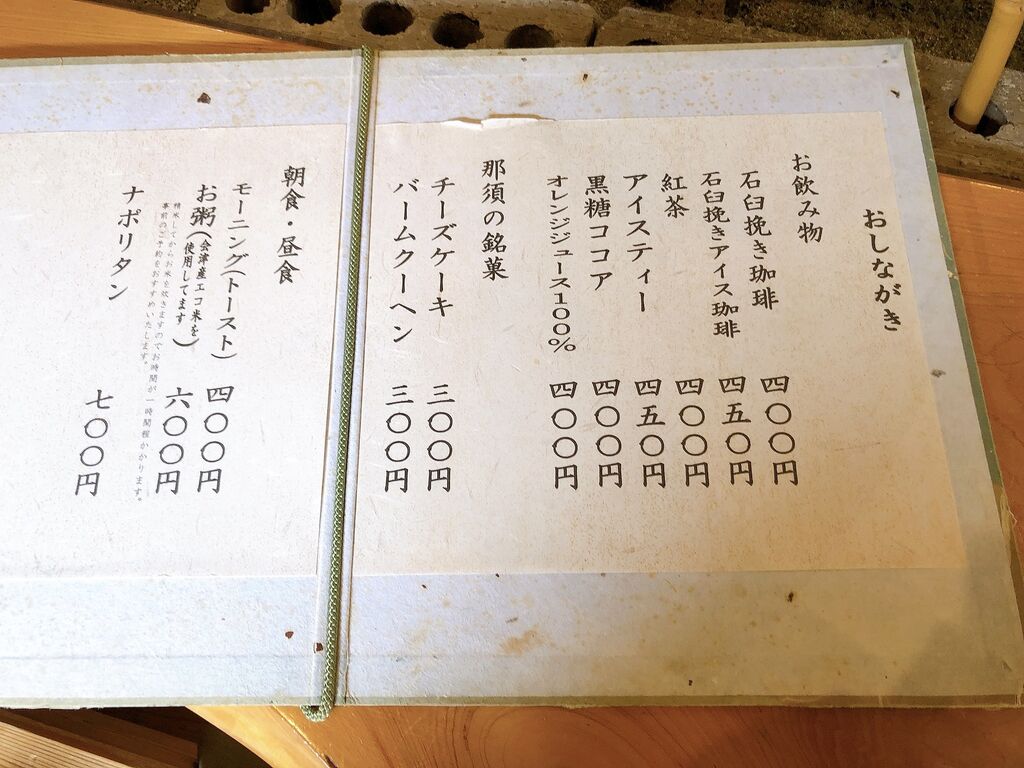 おしながき
お飲み物
石臼挽き珈琲 四〇〇円
石臼挽きアイス珈琲 四五〇円
紅茶 四〇〇円
アイスティー 四五〇円
黒糖ココア 四〇〇円
オレンジジュース100% 四〇〇円
那須の銘菓
チーズケーキ 三〇〇円
バームクーヘン 三〇〇円
朝食・昼食
モーニング(トースト) 四〇〇円
お粥(会津産エコ米を使用してます) 六〇〇円
精米してからお米を炊きますのでお時間が一時間程かかります。
事前のご予約をおすすめいたします。
ナポリタン 七〇〇円